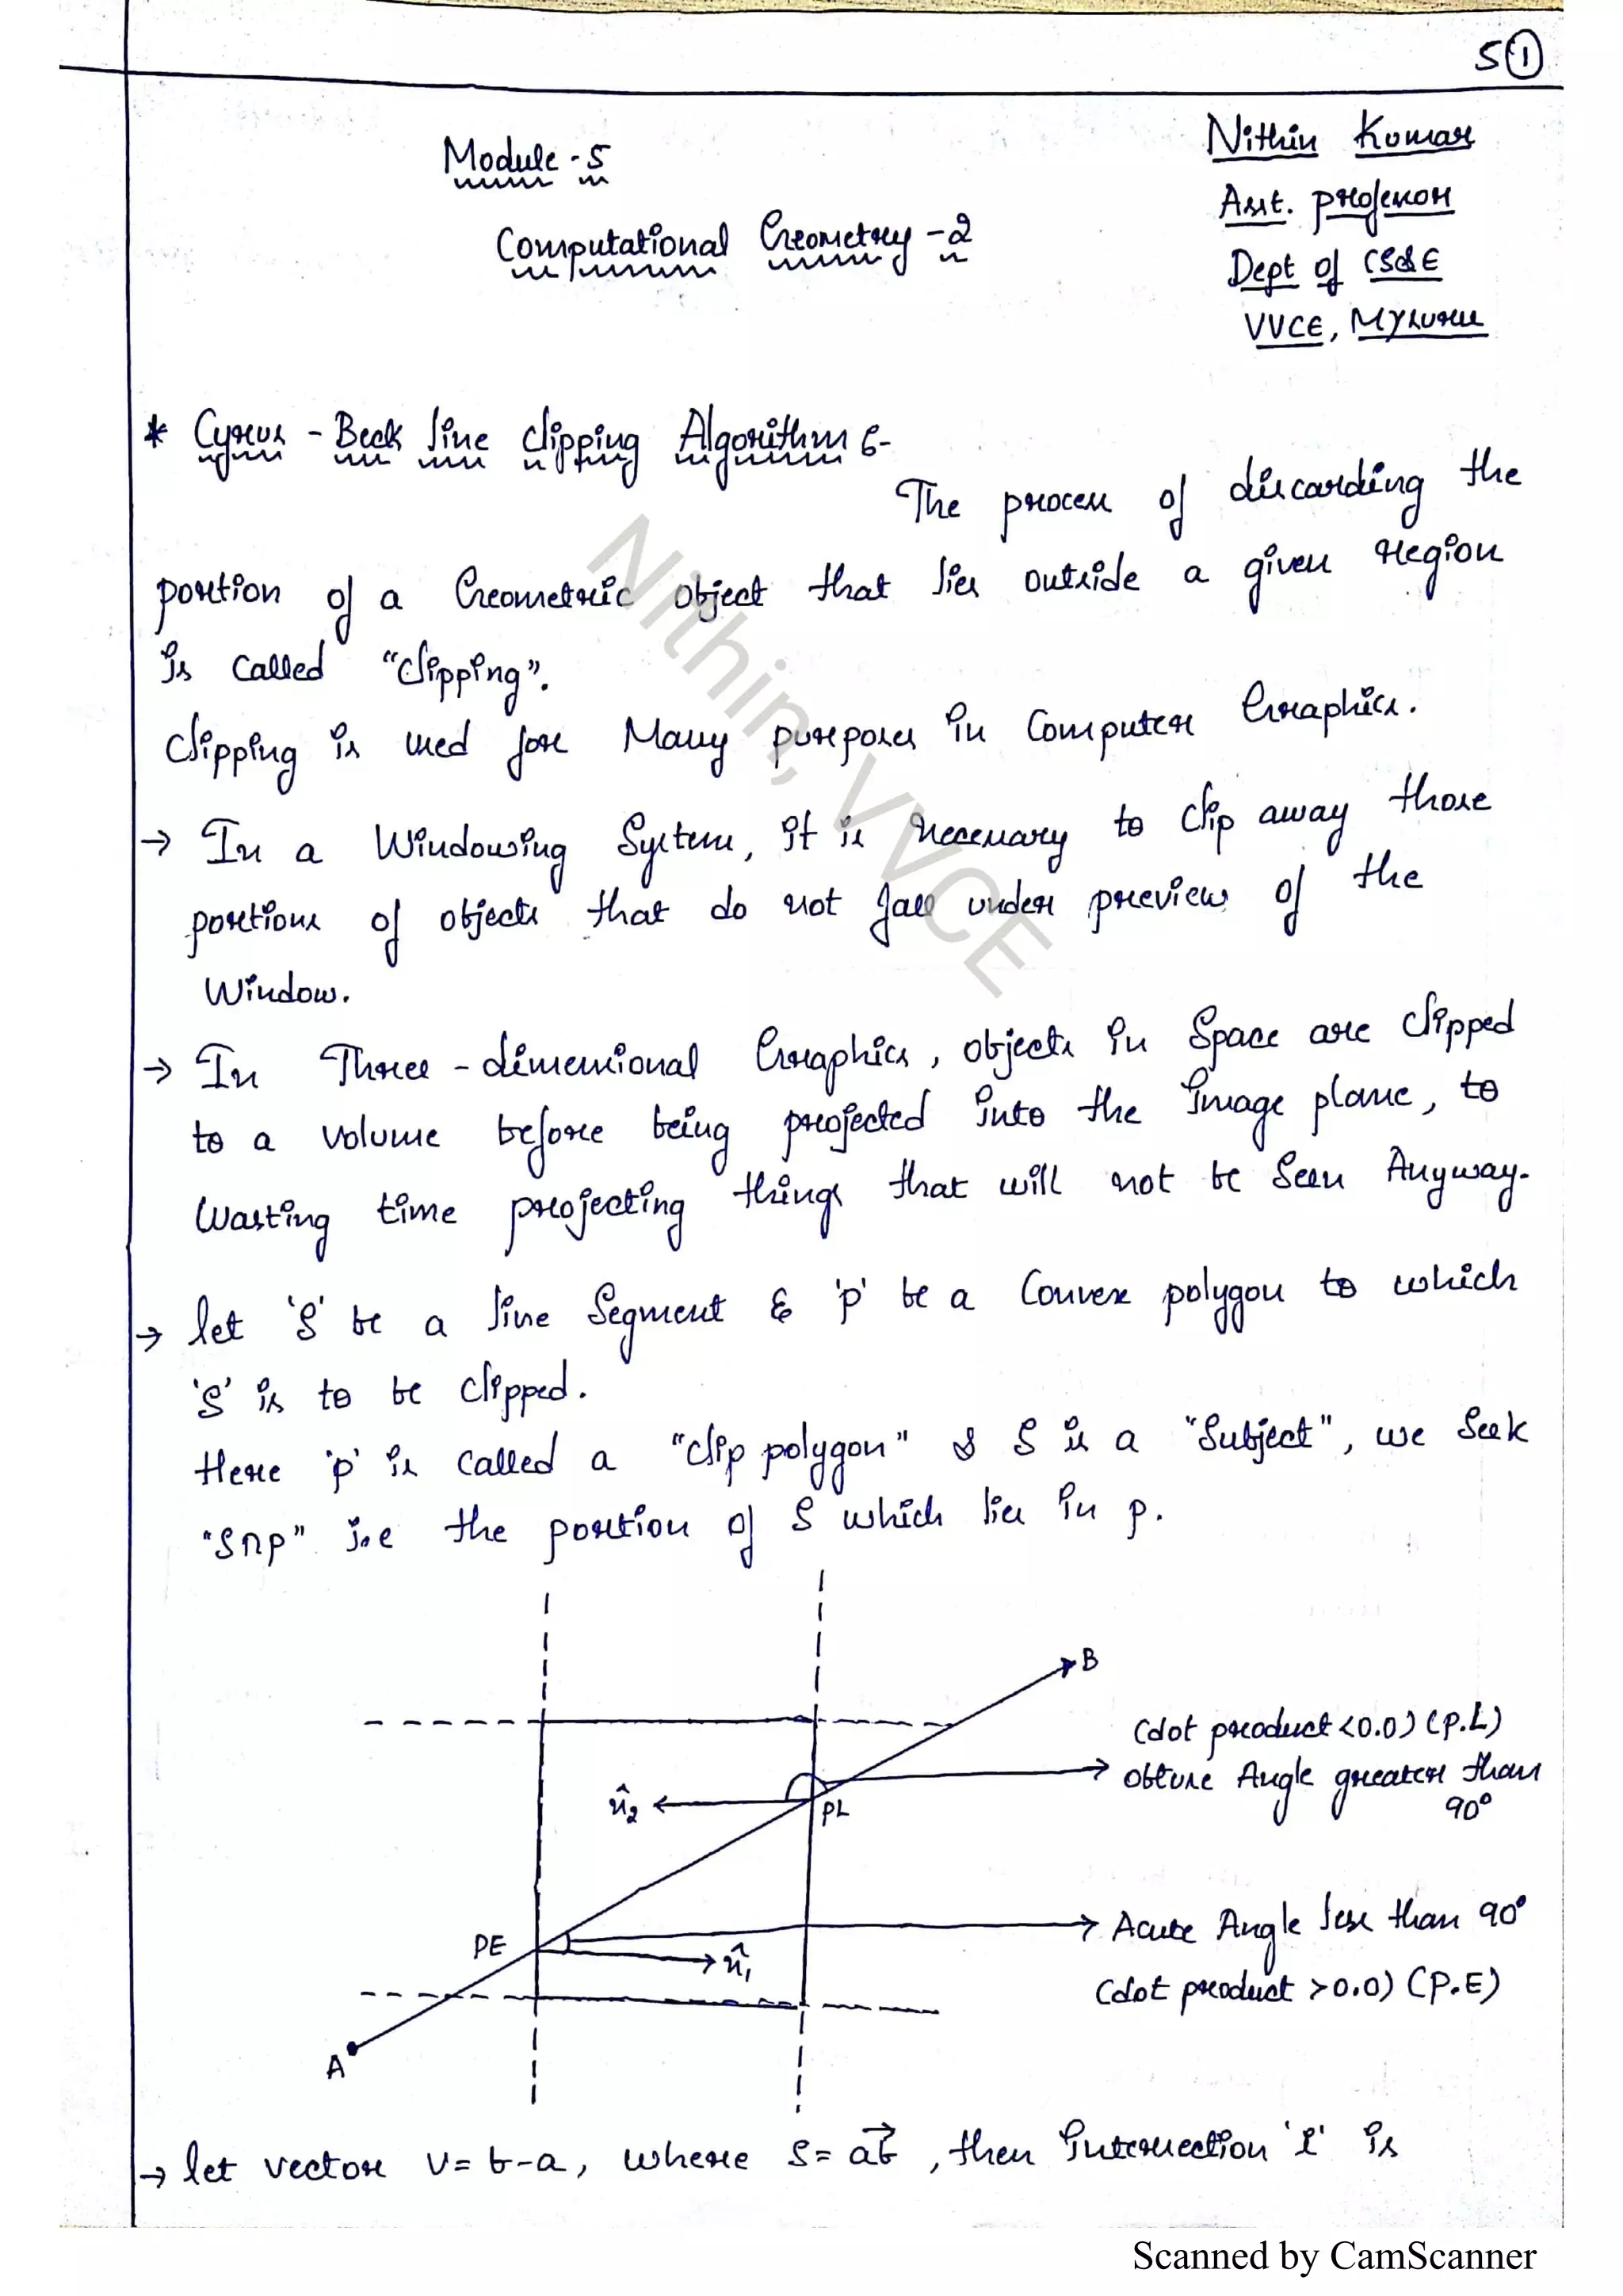 5 ①
Nithin Kumar
Module - 5
Asst. professor
Computational Geometry - 2
Dept of CS&E
VVCE, Mysuru
* Cyrus - Beck line clipping Algorithm :-
The process of discarding the
portion of a Geometric object that lies outside a given region
is called "clipping".
Clipping is used for Many purposes in Computer Graphics.
→ In a Windowing System, it is necessary to clip away those
portions of objects that do not fall under preview of the
Window.
→ In Three - dimensional Graphics, objects in Space are clipped
to a volume before being projected into the image plane, to
Wasting time projecting things that will not be Seen Anyway.
→ let 'S' be a line Segment & 'p' be a Convex polygon to which
'S' is to be clipped.
Here 'p' is called a "clip polygon" & S is a "Subject", we Seek
"S∩p" i.e the portion of S which lies in p.
B
(dot product <0.0) (P.L)
obtuse Angle greater than
90°
n̂₂
PL
PE
n̂₁
Acute Angle less than 90°
(dot product >0.0) (P.E)
A
→ let vector v = b-a, where S = ab⃗, then intersection 'I' is
Nithin, VVCE
Scanned by CamScanner